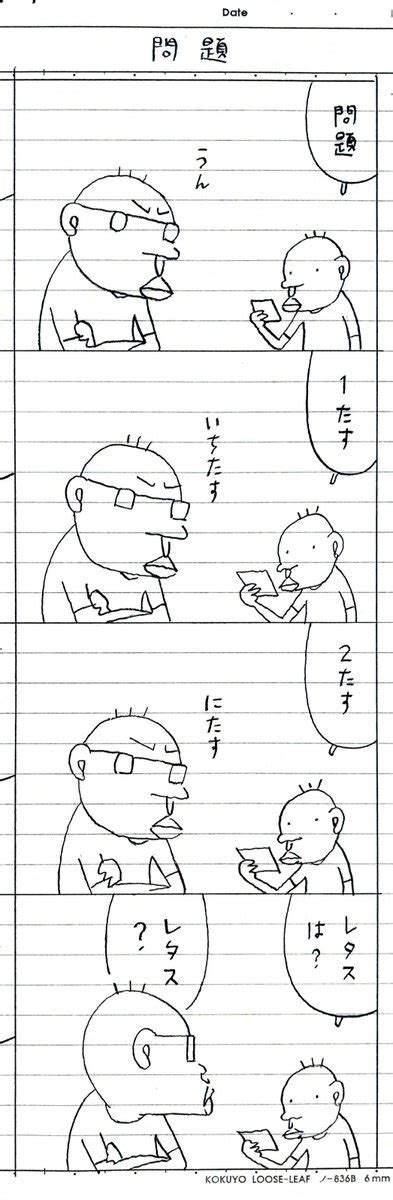 Date
問題
問題
うん
1たす
いちたす
2たす
にたす
レタス
は？
レタス
？
KOKUYO LOOSE-LEAF ノ-836B 6mm